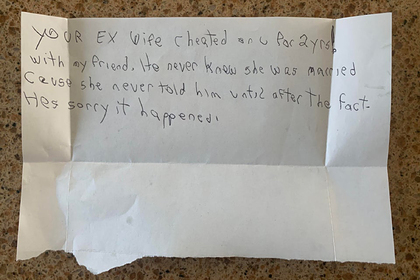 YOUR EX Wife cheated on u for 2yrs
with my friend. He never knew she was married
Cause she never told him until after the fact.
Hes sorry it happened.